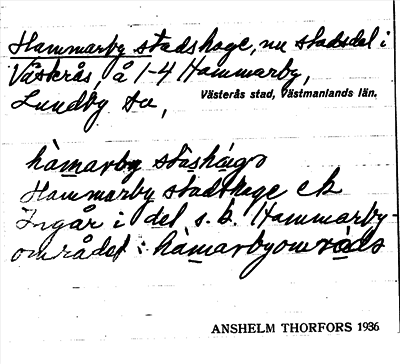 Hammarby stadshage, nu stadsdel i
Västerås, å 1-4 Hammarby,
Lundby sn,
Västerås stad, Västmanlands län.
hàmarby stàshágo
Hammarby stadthage ek
Ingår i del s.k. Hammarby-
området: hàmarbyområds
ANSHELM THORFORS 1936